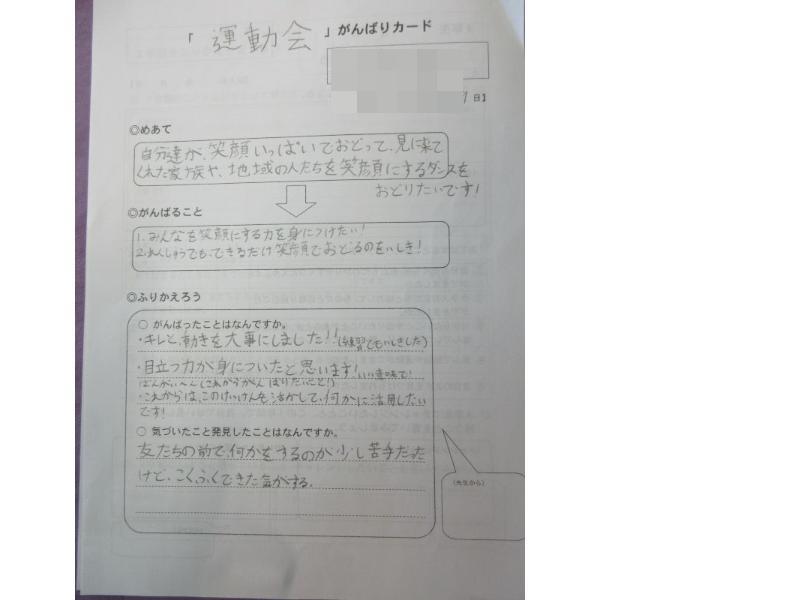 「 運動会 」がんばりカード
日】
◎めあて
自分達が、笑顔いっぱいでおどって、見に来て
くれた家族や、地域の人たちを笑顔にするダンスを
おどりたいです!
◎がんばること
1.みんなを笑顔にする力を身につけたい!
2.れんしゅうでも、できるだけ笑顔でおどるのをいしき!
◎ふりかえろう
○ がんばったことはなんですか。
・キレと、動きを大事にしました!!(練習でもいしきした)
・目立つ力が身についたと思います!いい意味で!
ばんがいへん(これからがんばりたいこと!)
・これからは、このけいけんを活かして、何かに活用したい
です!
○ 気づいたこと発見したことはなんですか。
友たちの前で、何かをするのが少し苦手だった
けど、こくふくできた気がする。
(先生から)